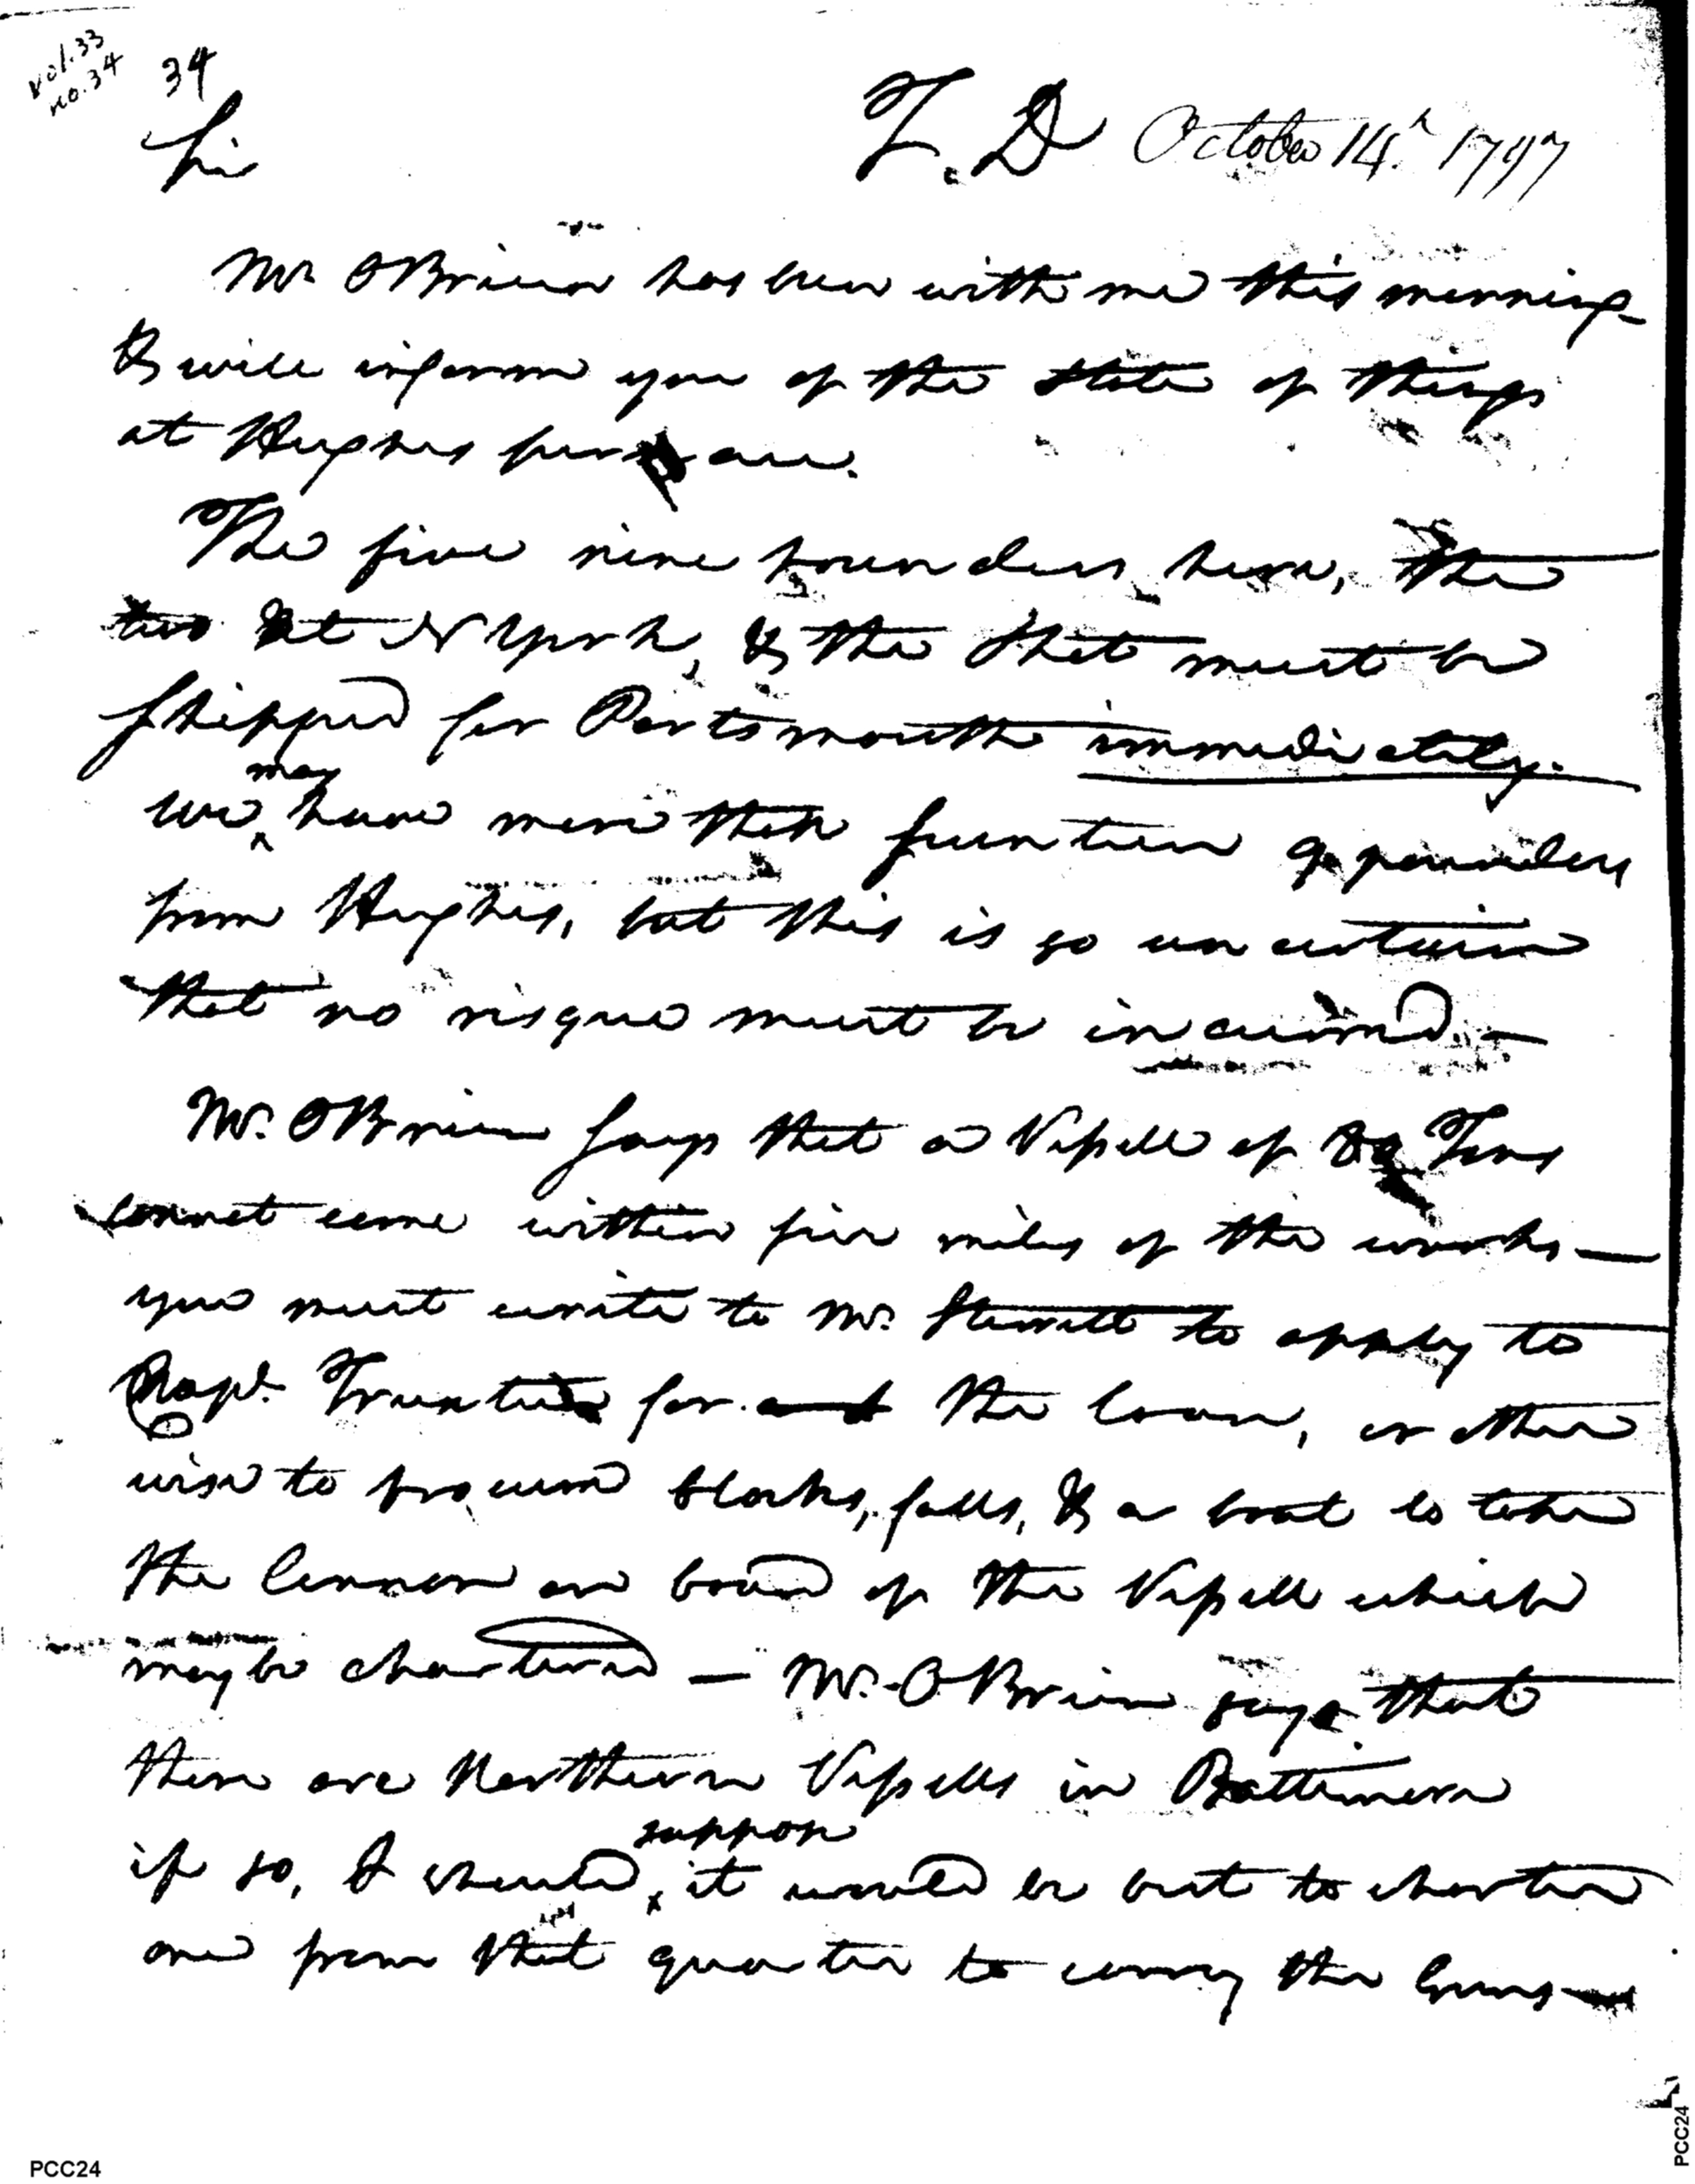 vol. 33
no. 34
34
Sir
T. D October 14th 1797
Mr OBrien has been with me this morning
& will inform you of the state of things
at Hughes furnace.
The five nine pounders here, the
two at N York, & the shot must be
shipped for Portsmouth immediately.
may
We have more than fourteen 9 pounders
from Hughes, but this is so uncertain
that no risque must be incurred. —
Mr. OBrien says that a Vessell of 80 Tons
cannot come within five miles of the works —
you must write to Mr. Sterrett to apply to
Capt. Truxtun for the loan, or other
wise to procure blocks, falls, & a boat to take
the Cannon on board of the Vessell which
may be chartered — Mr. OBrien says that
there are Northern Vessells in Baltimore
suppose
if so, I should it would be best to charter
one from that quarter to convey the Guns —
PCC24
PCC24